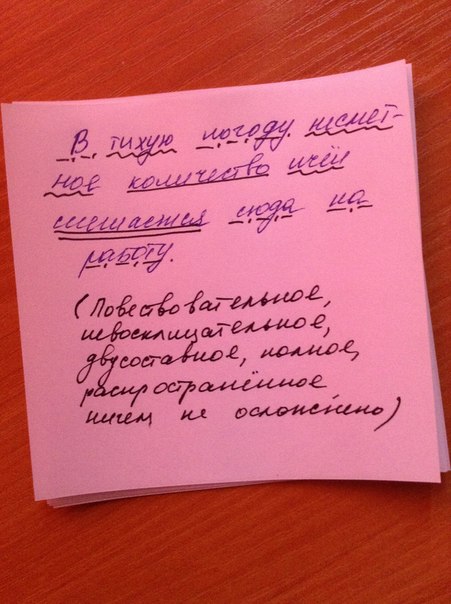 В тихую погоду несмет-
ное количество пчёл
слетается сюда на
работу.
(Повествовательное,
невосклицательное,
двусоставное, полное,
распространённое
ничем не осложнено)